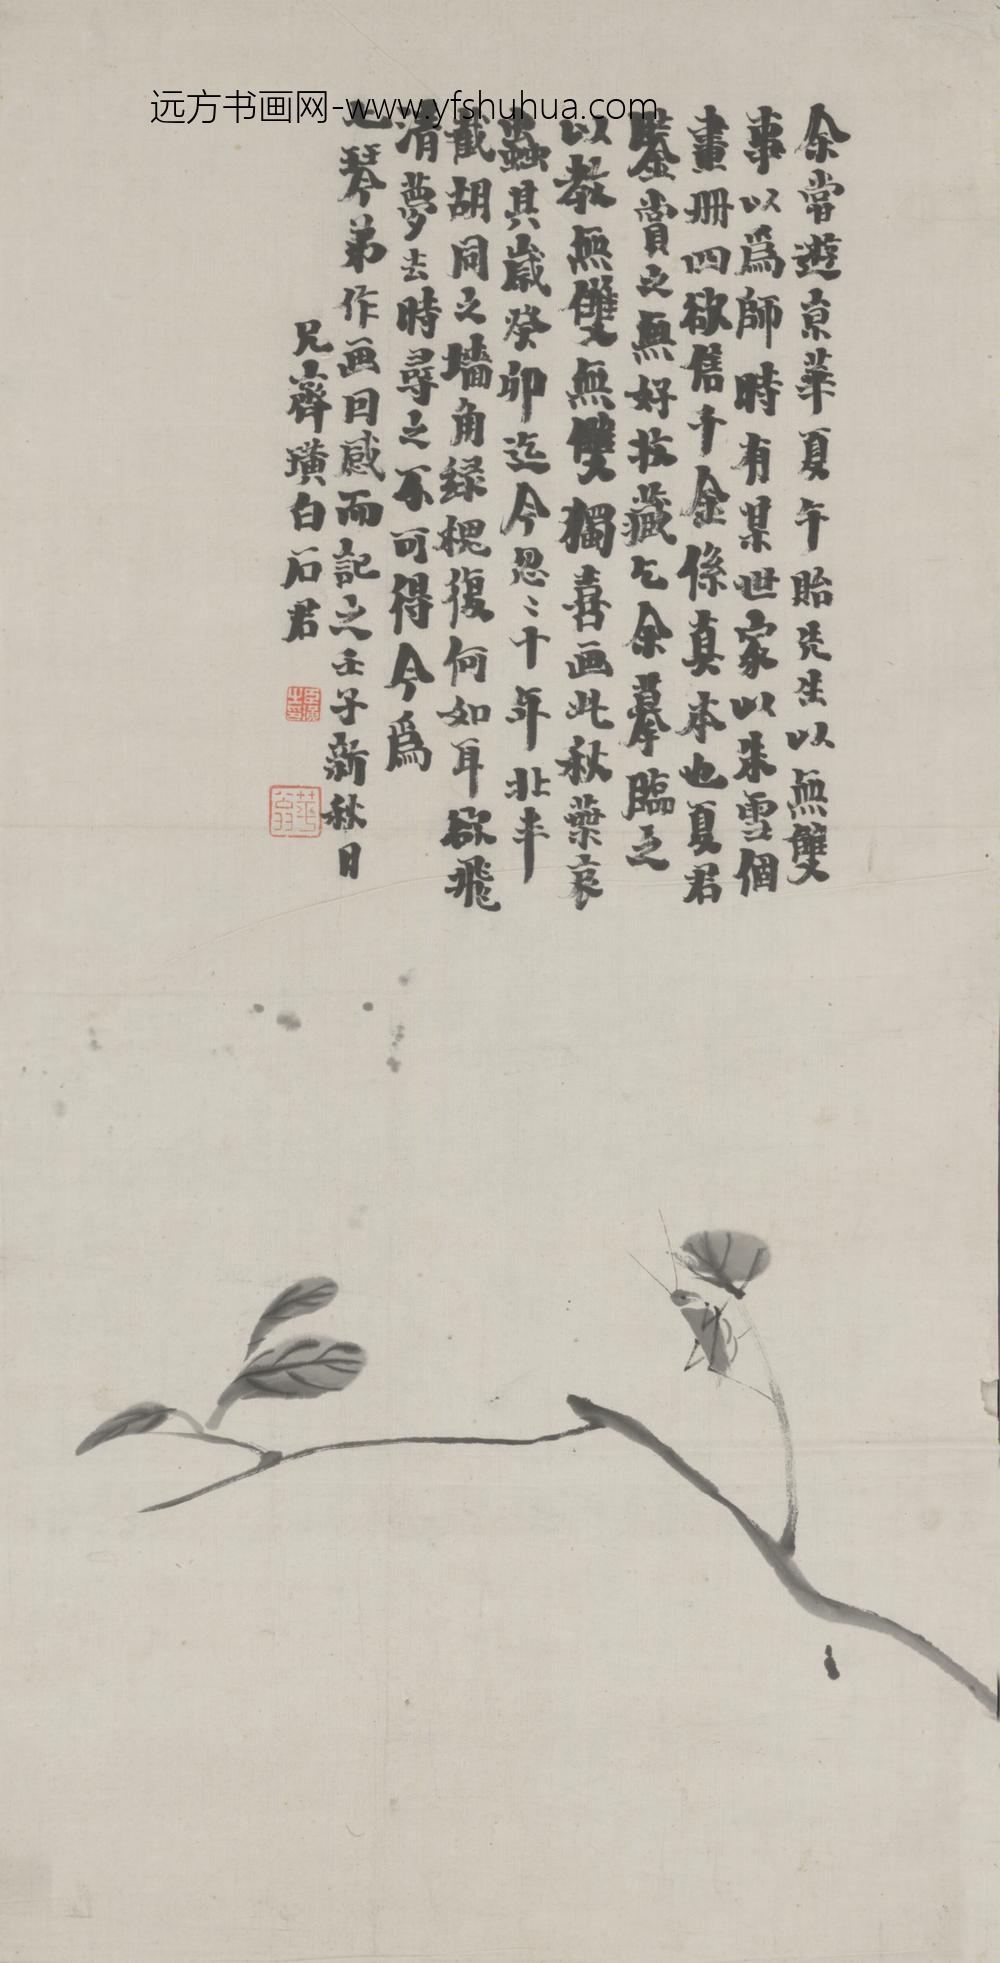 远方书画网-www.yfshuhua.com
余嘗遊京華夏午詒先生以無雙
事以爲師時有某世家以朱雪個
畫册四欲售千金係真本也夏君
鑒賞之無好收藏乞余摹臨之
以教無雙無雙獨喜画此秋葉哀
蟲其歲癸卯迄今忽〻十年北半
截胡同之墻角綠槐復何如耳欲飛
清夢去時尋之不可得今爲
琴弟作画回感而記之壬子新秋日
兄齊璜白石君